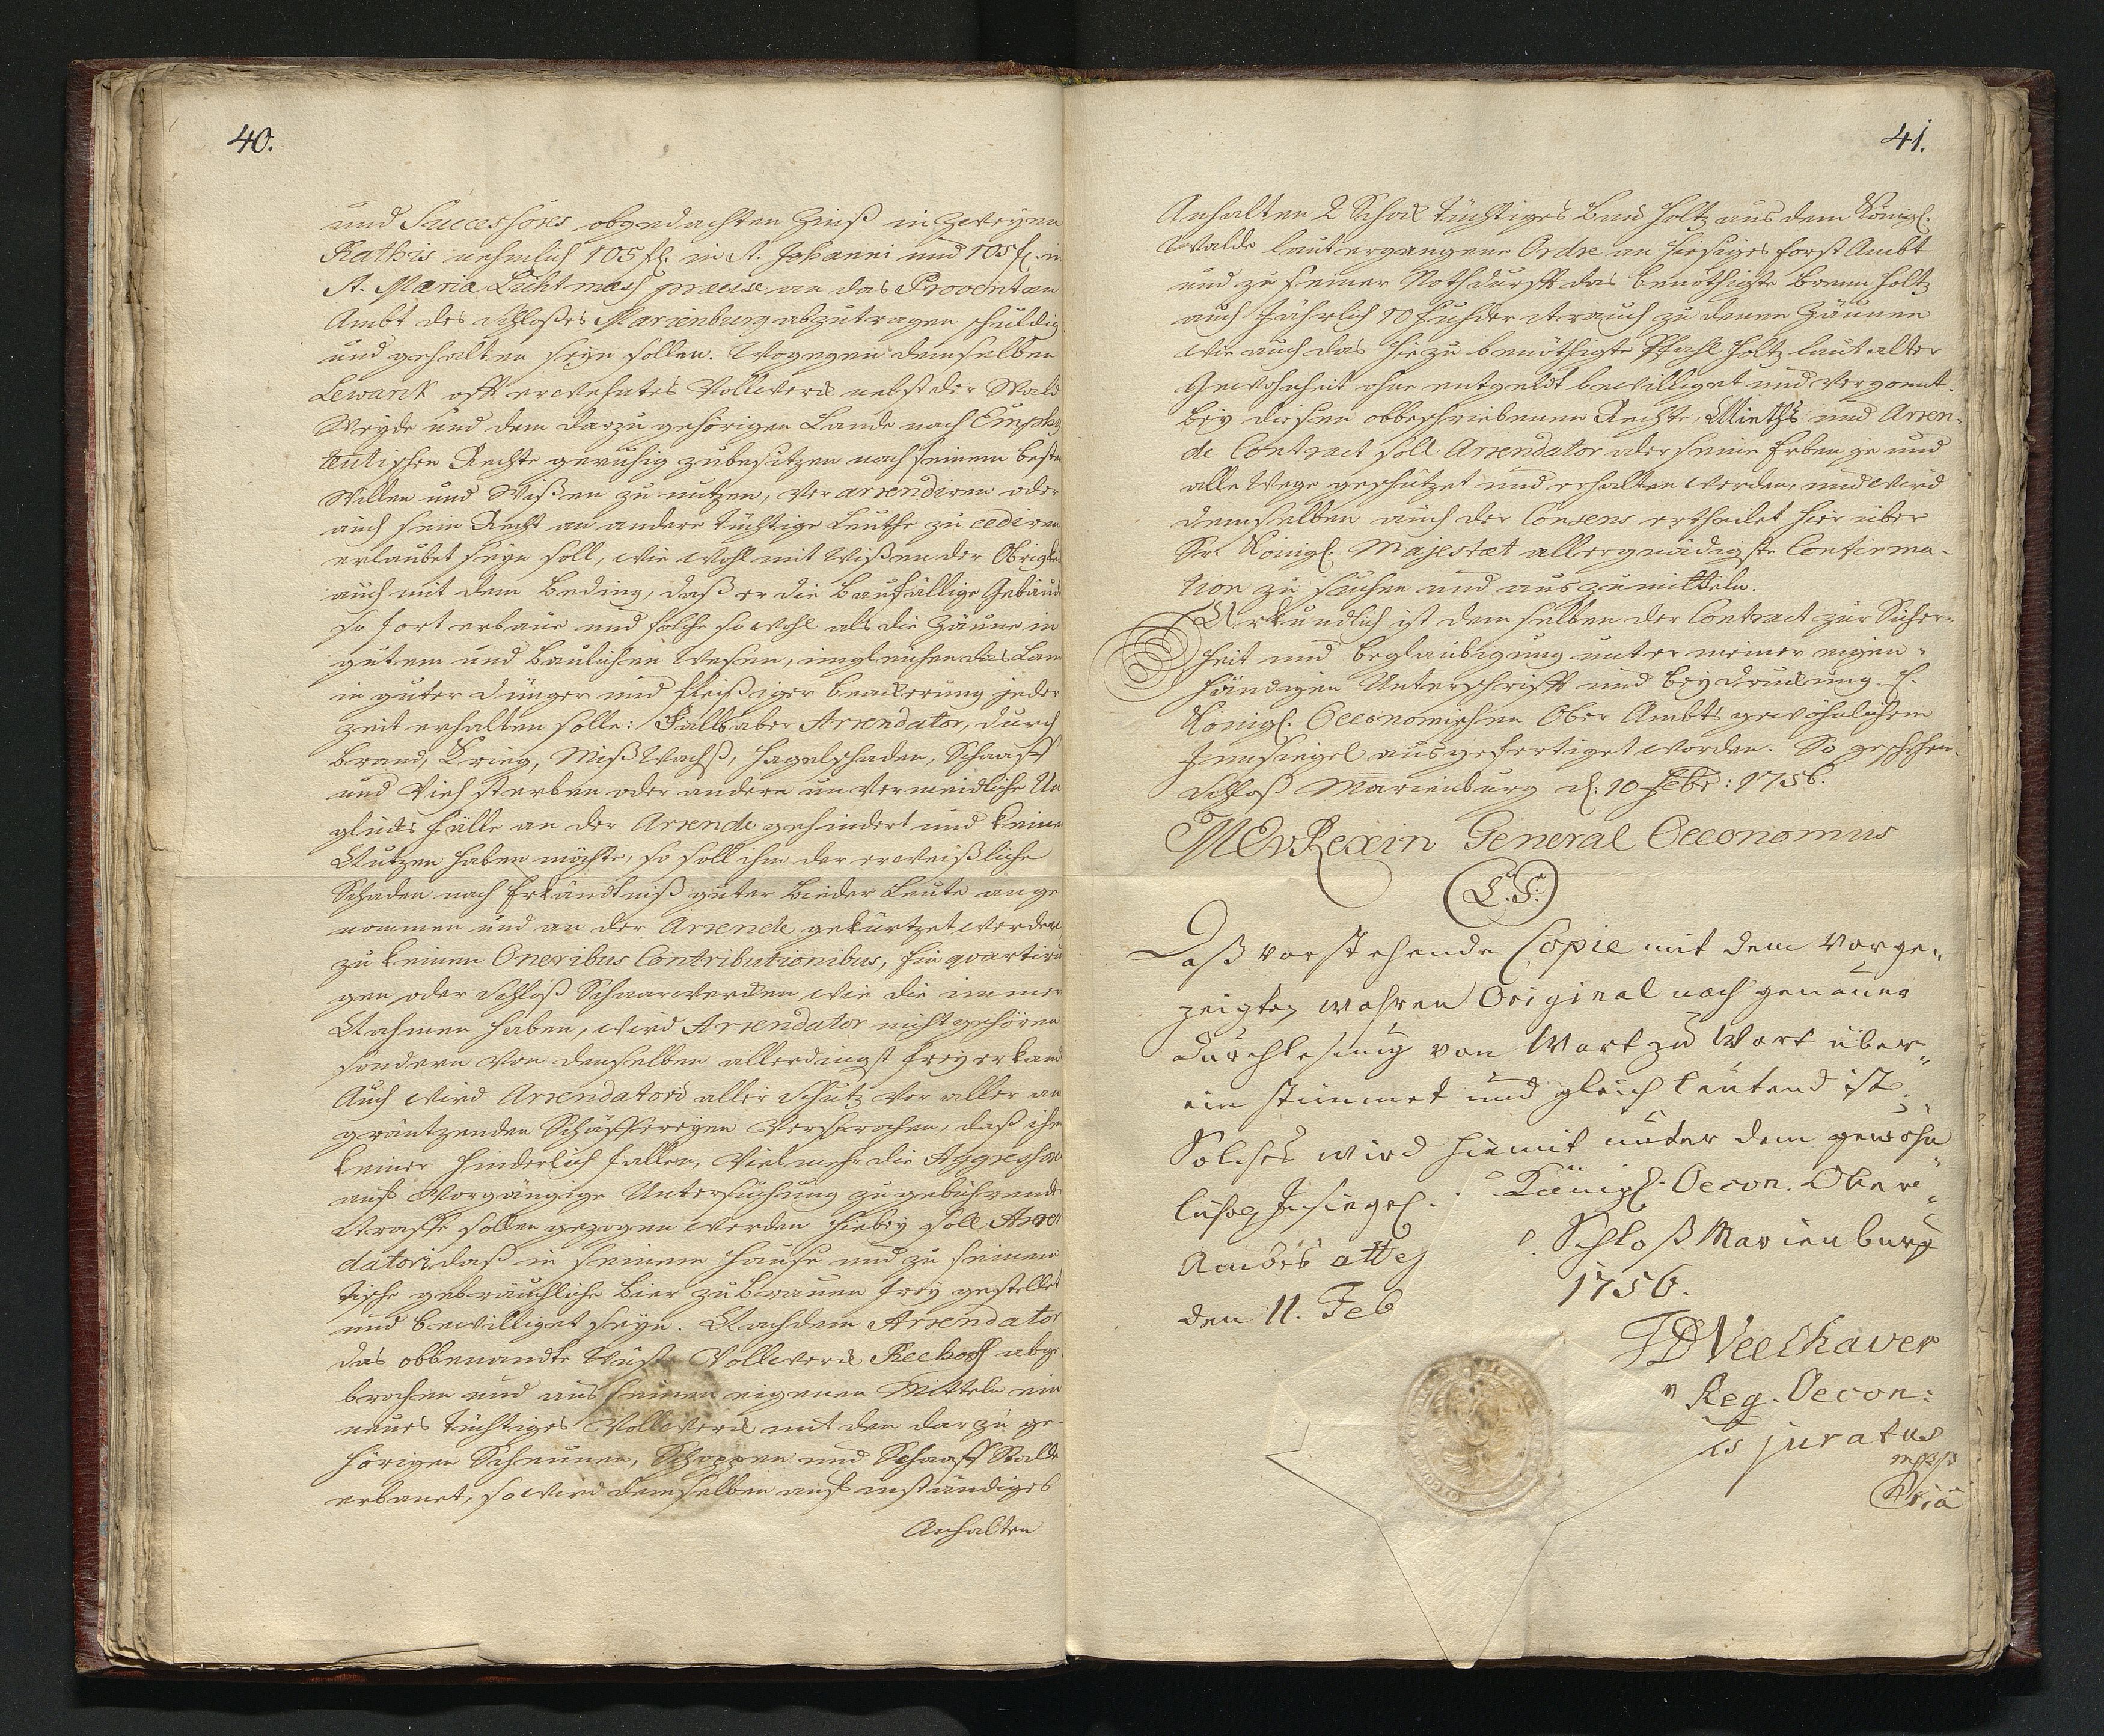 40.
und Successores obgedachten Zinß in Zweyen
Rathis nehmlich 105 fl. in St. Johanni und 105 fl. in
St. Maria Lichtmess praecise an das Provent
Ambt des Schloßes Marienburg abzutragen schuldig
und gehalten seyn sollen. Wogegen demselben
Lewark offt erwehntes Vollwerck nebst der Wald
Weyde und dem darzu gehörigen Lande nach Emphy
teutischen Rechte geruhig zubesitzen nach seinem besten
Willen und Wißen zu nutzen, verarrendiren oder
auch sein Recht an andere tüchtige Leuthe zu cediren
erlaubet seyn soll, wie wohl mit Wißen der Obrigkeit
auch mit dem Beding, daß er die Baufällige Gebäud
so fort erbaue und solche so wohl als die Zäune in
gutem und baulichen Wesen, imgleichen das Land
in guter Dünger und fleißiger beackerung jeder
zeit erhalten solle: Falls aber Arrendator, durch
Brand, Krieg, Mißwachß, Hagelschaden, Schaaff
und Vieh sterben oder andere unvermeidliche Un
glücks fälle an der Arrende gehindert und keinen
Nutzen haben möchte, so soll ihm der erweißliche
Schaden nach Erkändtniß guter Bieder Leute ange
nommen und an der Arrende gekürtzet werden
zu keinen Oneribus Contributionibus, Einquartirun
gen oder Schloß Schaarwercken wie die immer
Nahmen haben, wird Arrendator nicht gehören
sondern von denselben allerdingst frey erkand
Auch wird Arrendatori aller Schutz vor aller an
gräntzenden Schäffereyen versprochen, daß ihm
keiner hinderlich fallen, vielmehr die Aggressores
auff vorgängige Untersuchung zu gebührender
Straffe sollen gezogen werden hiebey soll Arren
datori daß in seinem Hause und zu seinem
Tische gebräuchliche Bier zu brauen frey gestellet
und bewilliget seyn. Nachdem Arrendator
das obbenandte wüste Vollwerck Reehoff abge
brochen und aus seinen eigenen Mitteln ein
neues tüchtiges Vollwerck mit den darzu ge-
hörigen Scheunen, Schoppen und Schaaff Stalle
erbauet, so wird demselben auff inständiges
Anhalten
41.
Anhalten 2 Schock tüchtiges Bau Holtz aus dem Königl.
Walde laut ergangene Ordre an hiesiges Forst Ambt
und zu seiner Nothdurfft das benöthigte Brenn Holtz
auch Jährlich 10 Fuhder Strauch zu denen Zäunen
wie auch das hiezu benöthigte Pfahl Holtz laut alter
Gewohnheit ohne entgeldt bewilliget und vergönnt.
bey diesem obbeschriebenen Rechte, Mieths und Arren-
de Contract soll Arrendator oder seine Erben je und
alle Wege geschützet und erhalten werden, und wird
demselben auch der Consens ertheilet hier über
Sr. Königl. Majestæt allergnädigste Confirma-
tion zu suchen und auszumitteln.
Urkundlich ist demselben der Contract zur Sicher-
heit und beglaubigung unter meiner eigen-
händigen Unterschrifft und beydruckung E.
Königl. Oeconomischen Ober Ambts gewöhnlichem
Innsiegel ausgefertiget worden. So geschehen
Schloß Marienburg d. 10 Febr: 1756.
MEvRexin General Oeconomus
L.S.
Daß vorstehende Copie mit dem vorge-
zeigten wahren Original nach genauer
Durchlesung von Wort zu Wort über-
einstimmet und gleich lautend ist
Solches wird hiemit unter dem gewöhn
lichen Insiegel. Königl. Oecon. Ober
Ambts atte Schloß Marienburg
den 11. Feb 1756.
Veelhaver
Reg. Oecon:
juratus
mppr